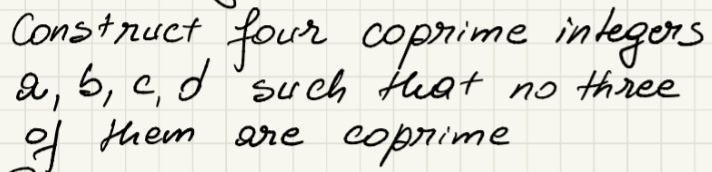 Construct four coprime integers
a, b, c, d such that no three
of them are coprime